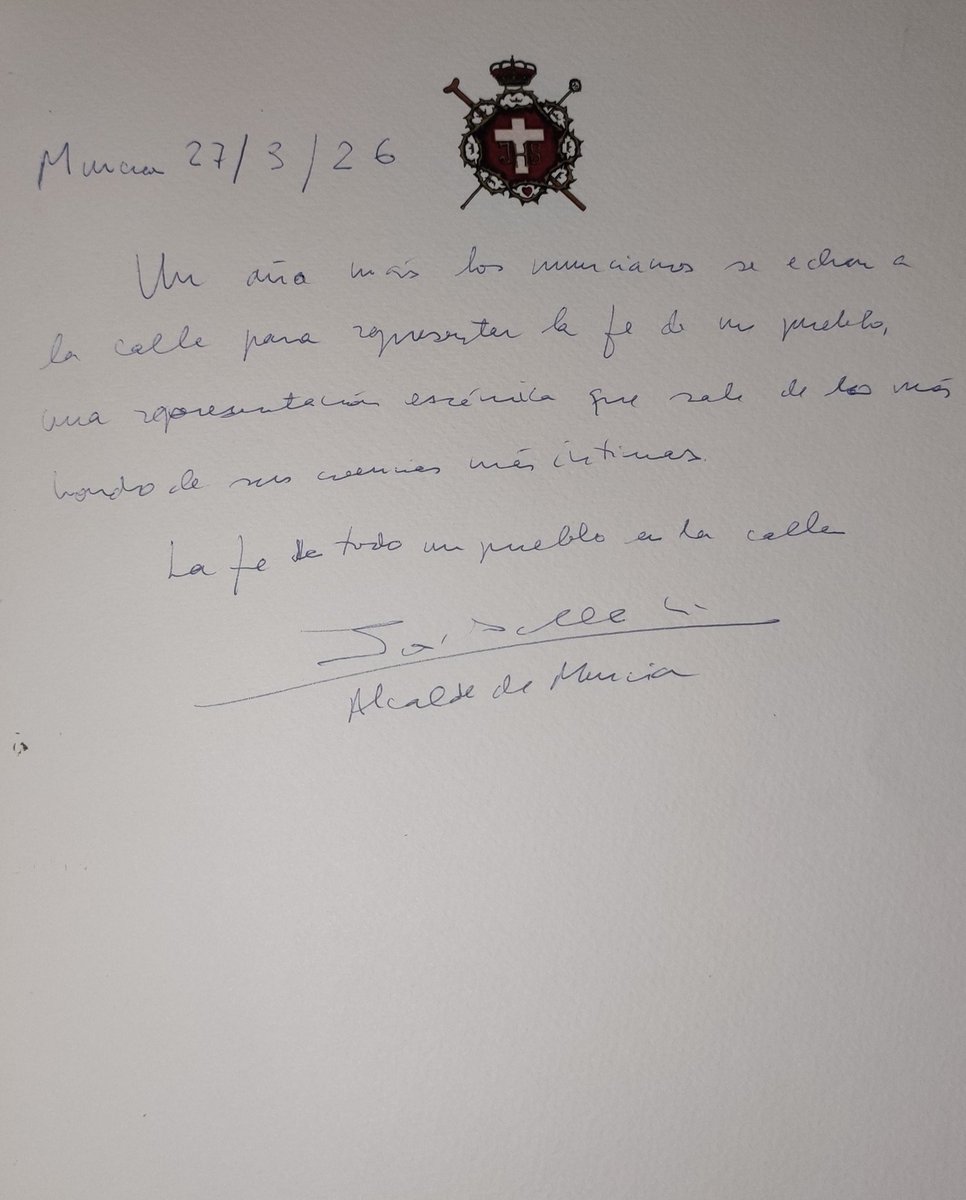 Murcia 27/3/26
JHS
Un año más los murcianos se echan a
la calle para representar la fe de un pueblo,
una representación escénica que sale de lo más
hondo de sus creencias más íntimas.
La fe de todo un pueblo en la calle
Alcalde de Murcia